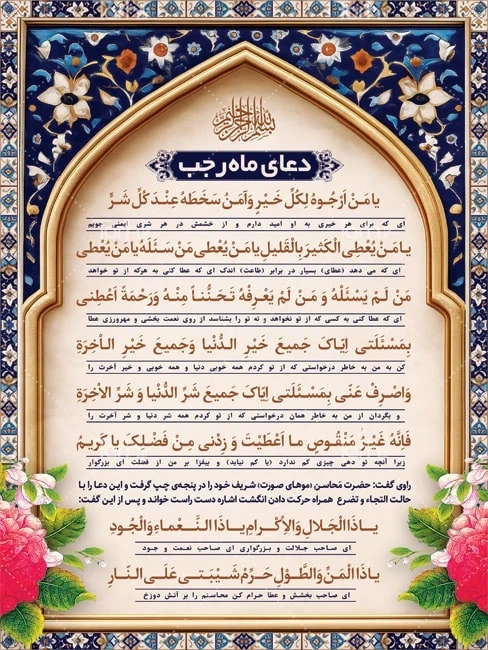 بسم الله الرحمن الرحیم
دعای ماه رجب
یا مَنْ اَرْجُوهُ لِکُلِّ خَیْرٍ وَ آمَنُ سَخَطَهُ عِنْدَ کُلِّ شَرٍّ
ای که برای هر خیری به او امید دارم و از خشمش در هر شری ایمنی جویم
یا مَنْ یُعْطِی الْکَثیرَ بِالْقَلیلِ یا مَنْ یُعْطی مَنْ سَئَلَهُ یا مَنْ یُعْطی
ای که می دهد (عطای) بسیار در برابر (طاعت) اندک ای که عطا کنی به هرکه از تو خواهد
مَنْ لَمْ یَسْئَلْهُ وَ مَنْ لَمْ یَعْرِفْهُ تَحَنُّناً مِنْهُ وَرَحْمَةً اَعْطِنی
ای که عطا کنی به کسی که از تو نخواهد و نه تو را بشناسد از روی نعمت بخشی و مهرورزی عطا
بِمَسْئَلَتی اِیّاکَ جَمیعَ خَیْرِ الدُّنْیا وَجَمیعَ خَیْرِ الْاخِرَةِ
کن به من به خاطر درخواستی که از تو کردم همه خوبی دنیا و همه خوبی و خیر آخرت را
وَاصْرِفْ عَنّی بِمَسْئَلَتی اِیّاکَ جَمیعَ شَرِّ الدُّنْیا وَ شَرِّ الْاخِرَةِ
و بگردان از من به خاطر همان درخواستی که از تو کردم همه شر دنیا و شر آخرت را
فَاِنَّهُ غَیْرُ مَنْقُوصٍ ما اَعْطَیْتَ وَ زِدْنی مِنْ فَضْلِکَ یا کَریمُ
زیرا آنچه تو دهی چیزی کم ندارد (یا کم نیاید) و بیفزا بر من از فضلت ای بزرگوار
راوی گفت: حضرت محاسن (موهای صورت) شریف خود را در پنجه‌ی چپ گرفت و این دعا را با
حالت التجاء و تضرع همراه حرکت دادن انگشت اشاره دست راست خواند و پس از این گفت:
یا ذَا الْجَلالِ وَالْاِکْرامِ یا ذَا النَّعْماءِ وَالْجُودِ
ای صاحب جلالت و بزرگواری ای صاحب نعمت و جود
یا ذَا الْمَنِّ وَالطَّوْلِ حَرِّمْ شَیْبَتی عَلَی النّارِ
ای صاحب بخشش و عطا حرام کن محاسنم را بر آتش دوزخ